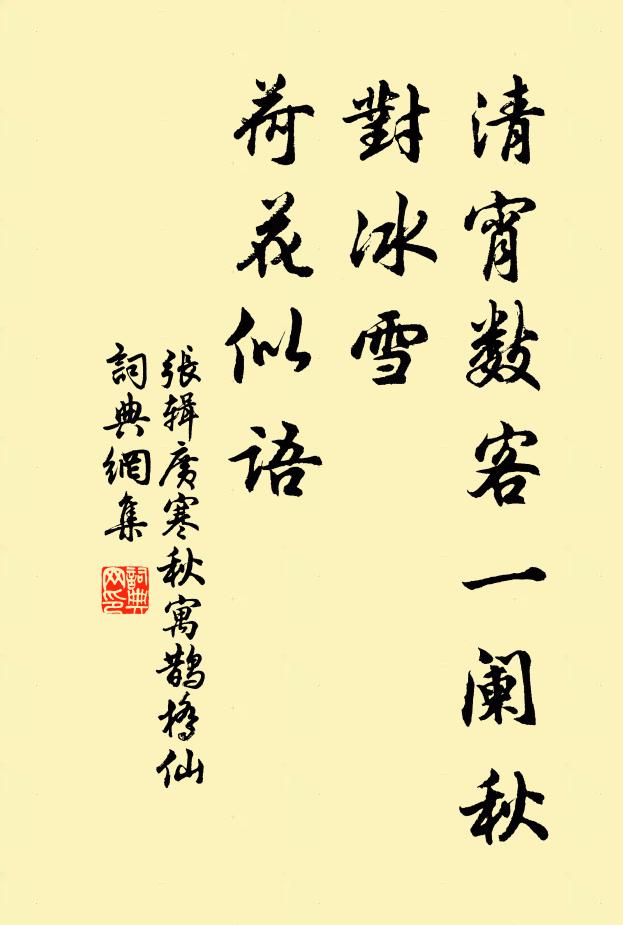 清宵數客一阑秋
對冰雪
荷花似語
張辑廣寒秋寓鵲橋仙
詞典網集
詞典网印